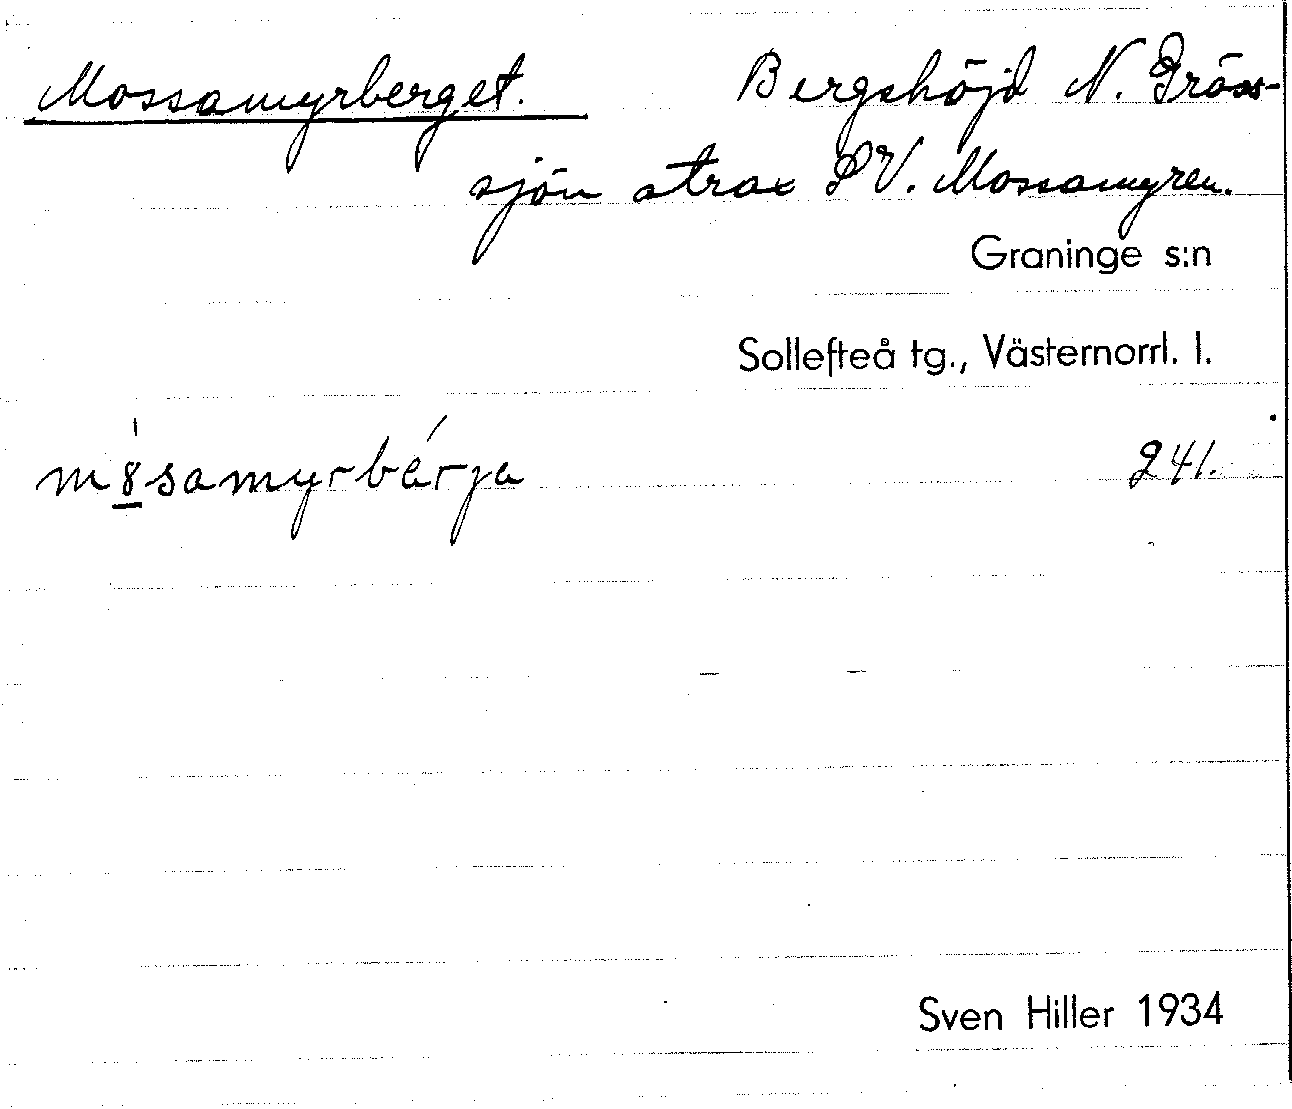 Mossamyrberget. Bergshöjd N. Gräss-
sjön strax SV. Mossamyren.
Graninge s:n
Sollefteå tg., Västernorrl. l.
241.
Sven Hiller 1934